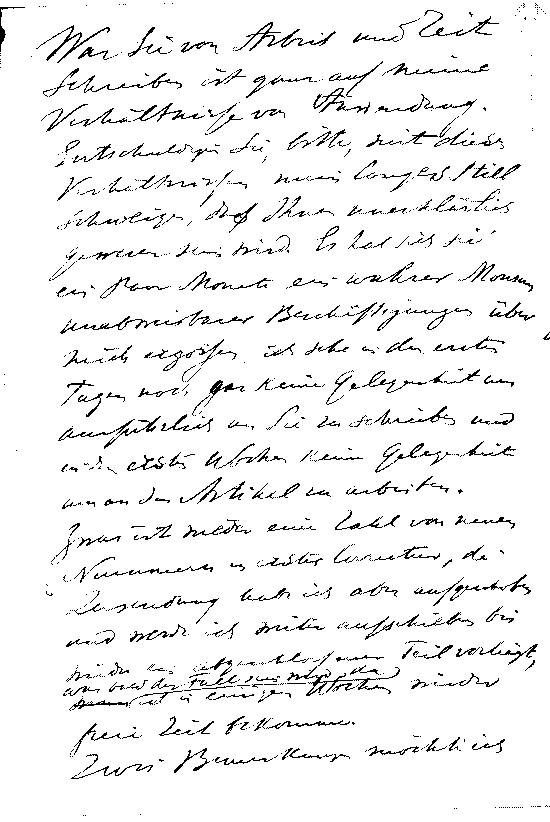 Was Sie von Arbeit und Zeit
Schreiben ist ganz auf meine
Verhältnisse von Anwendung.
Entschuldigen Sie, bitte, mit diesen
Verhältnissen mein langes Still
schweigen, daß Ihnen unerklärlich
gewesen sein wird. Es hat sich
ein Paar Monate ein wahrer Monsun
unabweisbarer Beschäftigungen über
mich ergossen, ich sehe in den ersten
Tagen noch gar keine Gelegenheit um
ausführlich an Sie zu schreiben und
in den ersten Wochen keine Gelegenheit
um an den Artikel zu arbeiten.
Zwar ist wieder eine Zahl von neuen
Nummern in erster Correctur, die
Zusendung habe ich aber aufgeschoben
und werde ich weiter aufschieben bis
wieder ein abgeschlossener Teil vorliegt,
was der Fall sein wird, da
ich in einigen Wochen wieder
freie Zeit bekomme.
Zwei Bemerkungen möchte ich